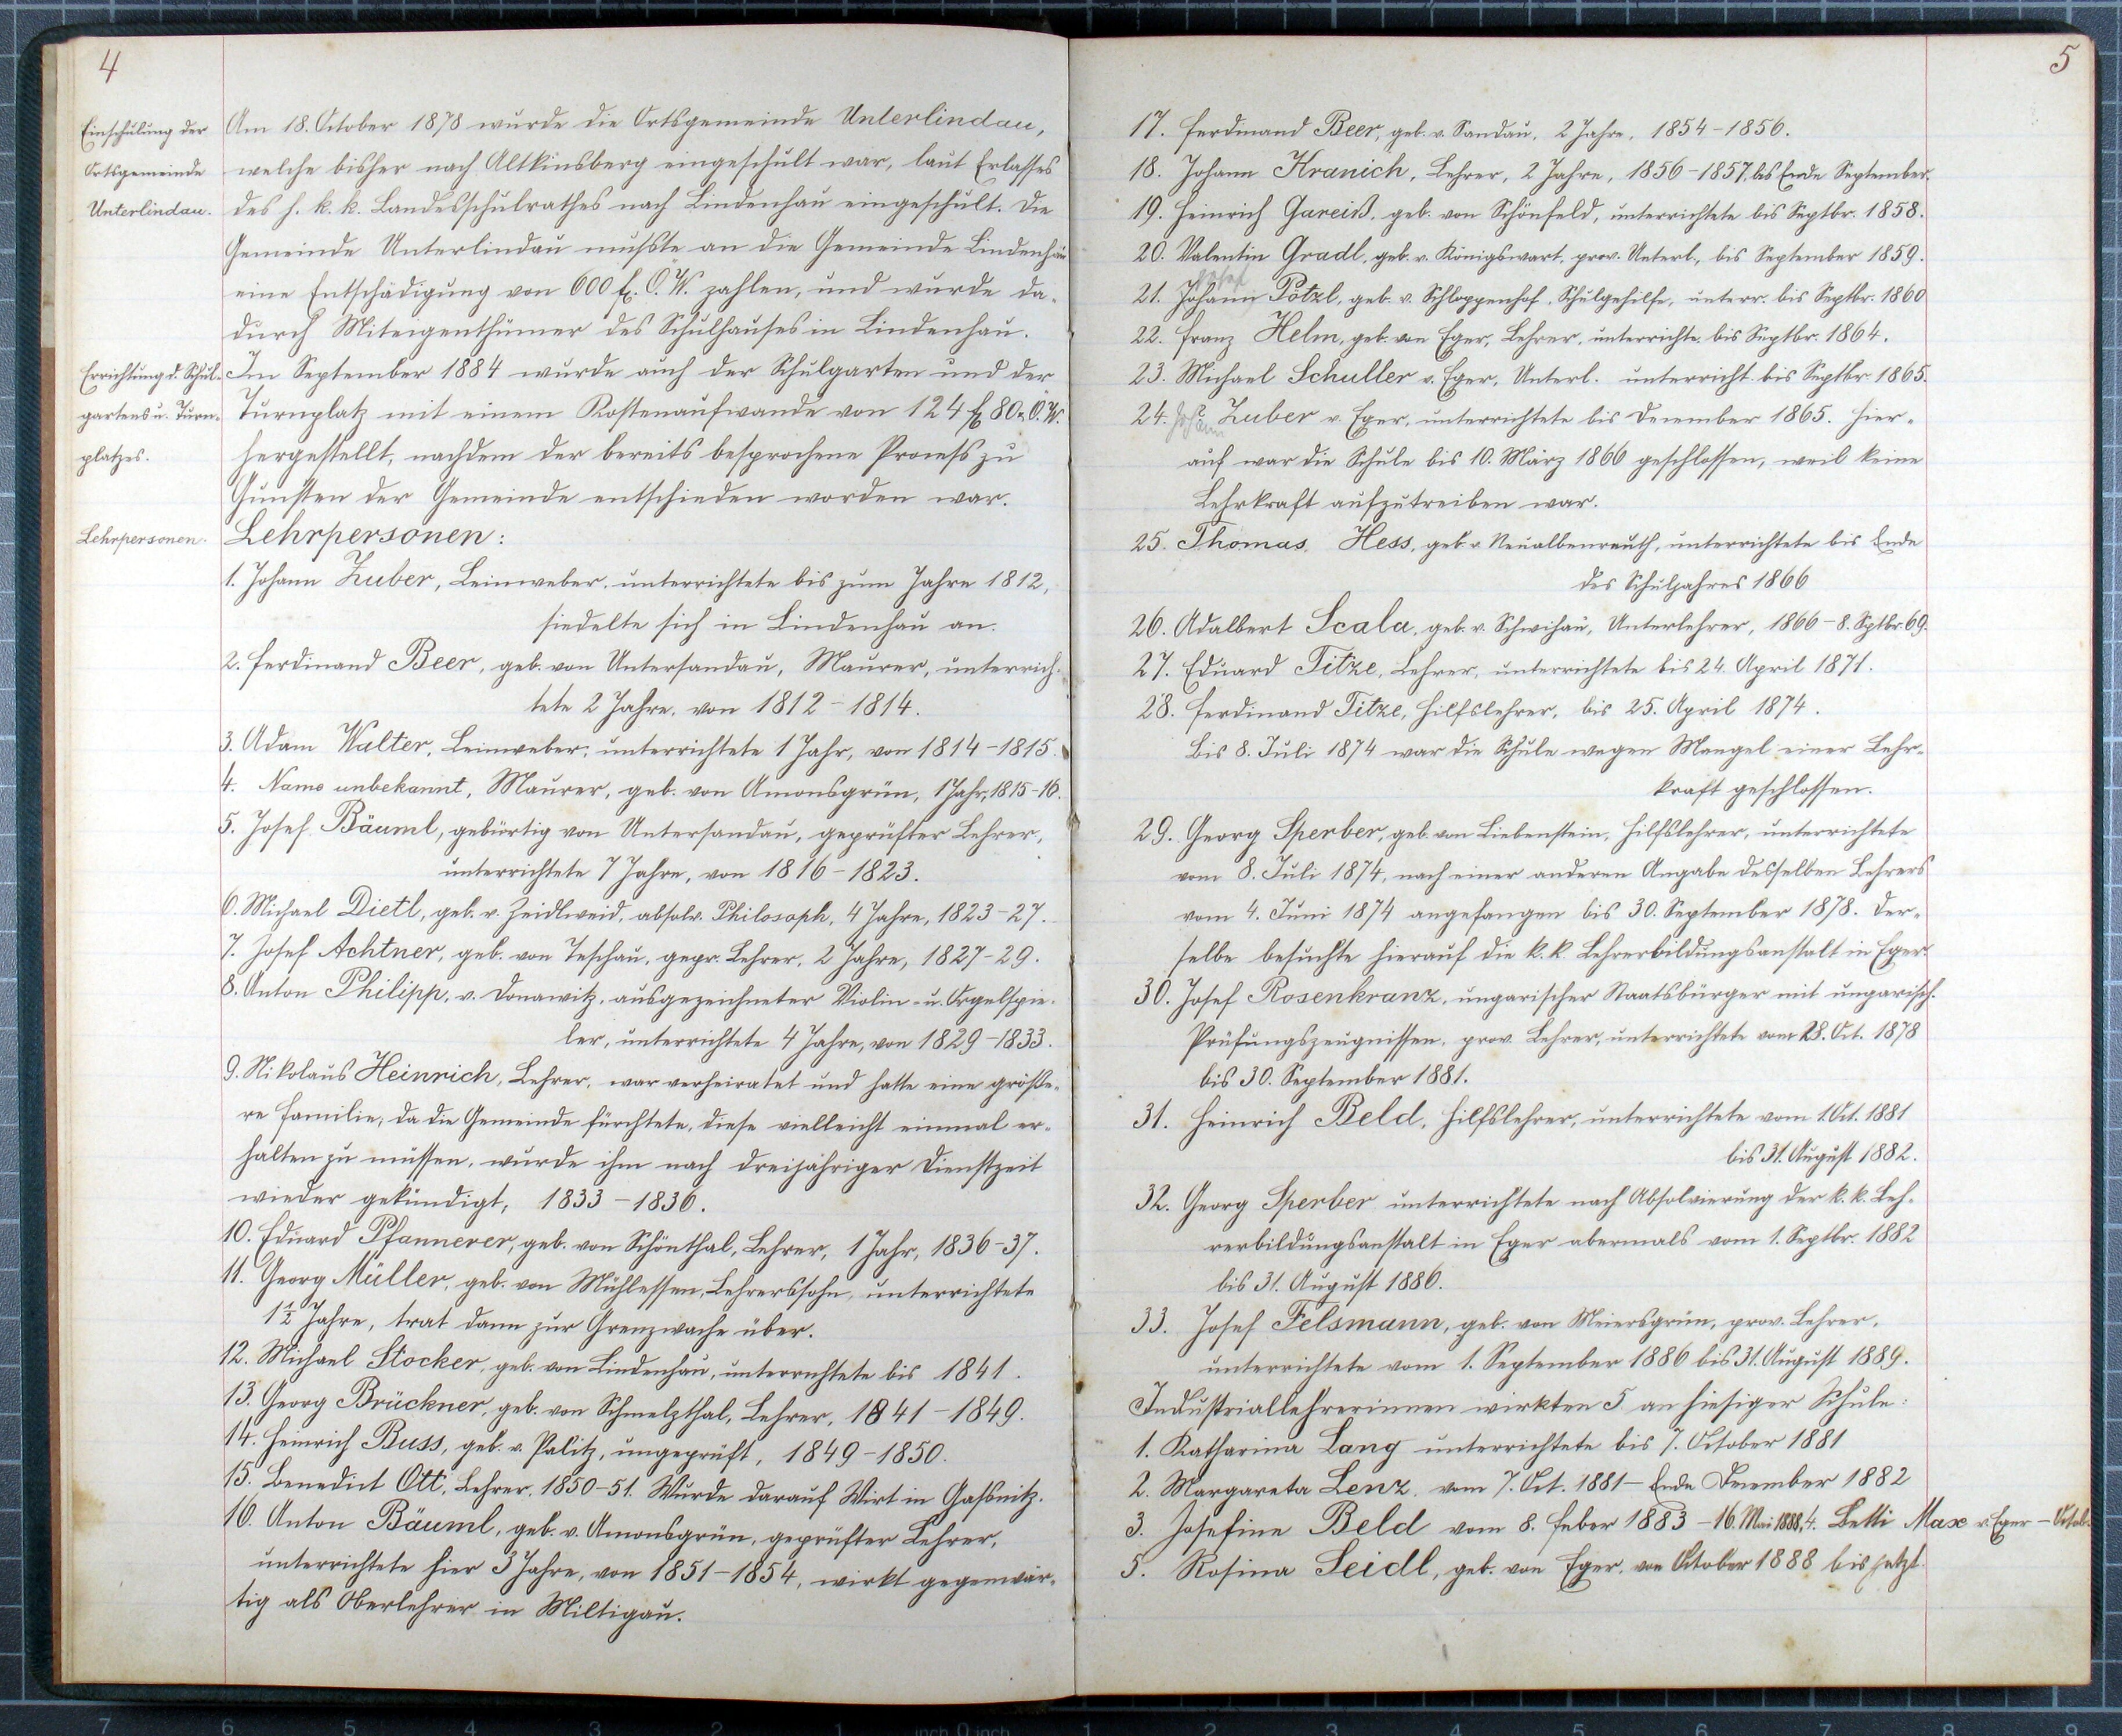 4
Einschulung der
Ortsgemeinde
Unterlindau.
Am 18. October 1878 wurde die Ortsgemeinde Unterlindau,
welche bisher nach Altkinsberg eingeschult war, laut Erlasses
des h. k. k. Landesschulrathes nach Lindenhau eingeschult. Die
Gemeinde Unterlindau mußte an die Gemeinde Lindenhau
eine Entschädigung von 600 f. Ö. W. zahlen, und wurde da-
durch Miteigenthümer des Schulhauses in Lindenhau.
Errichtung d. Schul-
gartens u. Turn-
platzes.
Im September 1884 wurde auch der Schulgarten und der
Turnplatz mit einem Kostenaufwande von 124 f 80 Ö. W.
hergestellt, nachdem der bereits besprochene Proceß zu
Gunsten der Gemeinde entschieden worden war.
Lehrpersonen.
Lehrpersonen:
1. Johann Zuber, Leinweber, unterrichtete bis zum Jahre 1812,
siedelte sich in Lindenhau an.
2. Ferdinand Beer, geb. von Untersandau, Maurer, unterrich-
tete 2 Jahre, von 1812 - 1814.
3. Adam Walter, Leinweber, unterrichtete 1 Jahr, von 1814 - 1815.
4. Name unbekannt, Maurer, geb. von Amonsgrün, 1 Jahr, 1815-16.
5. Josef Bäuml, gebürtig von Untersandau, geprüfter Lehrer,
unterrichtete 7 Jahre, von 1816 - 1823.
6. Michael Dietl, geb. v. Zeidlweid, absolv. Philosoph, 4 Jahre, 1823-27.
7. Josef Achtner, geb. von Teschau, gepr. Lehrer, 2 Jahre, 1827-29.
8. Anton Philipp, v. Donawitz, ausgezeichneter Violin- u. Orgelspie-
ler, unterrichtete 4 Jahre, von 1829 - 1833.
9. Nikolaus Heinrich, Lehrer, war verheiratet und hatte eine größe-
re Familie; da die Gemeinde fürchtete, diese vielleicht einmal er-
halten zu müssen, wurde ihm nach dreijähriger Dienstzeit
wieder gekündigt, 1833 - 1836.
10. Eduard Pfannerer, geb. von Schönthal, Lehrer, 1 Jahr, 1836-37.
11. Georg Müller, geb. von Mühlessen, Lehrerssohn, unterrichtete
1½ Jahre, trat dann zur Grenzwache über.
12. Michael Stocker, geb. von Lindenhau, unterrichtete bis 1841.
13. Georg Brückner, geb. von Schmelzthal, Lehrer, 1841 - 1849.
14. Heinrich Buss, geb. v. Palitz, ungeprüft, 1849 - 1850.
15. Benedict Ott, Lehrer, 1850-51. Wurde darauf Wirt in Gaßnitz.
16. Anton Bäuml, geb. v. Amonsgrün, geprüfter Lehrer,
unterrichtete hier 3 Jahre, von 1851 - 1854, wirkt gegenwär-
tig als Oberlehrer in Miltigau.
5
17. Ferdinand Beer, geb. v. Sandau, 2 Jahre, 1854 - 1856.
18. Johann Kranich, Lehrer, 2 Jahre, 1856 - 1857, bis Ende September.
19. Heinrich Gareiß, geb. von Schönfeld, unterrichtete bis Septbr. 1858.
20. Valentin Gradl, geb. v. Königswart, prov. Unterl., bis September 1859.
Josef
21. Johann Pötzl, geb. v. Schloppenhof, Schulgehilfe, unterr. bis Septbr. 1860
22. Franz Helm, geb. von Eger, Lehrer, unterrichte. bis Septbr. 1864.
23. Michael Schuller v. Eger, Unterl. unterricht. bis Septbr. 1865.
24. Johann Zuber v. Eger, unterrichtete bis December 1865. Hier-
auf war die Schule bis 10. März 1866 geschlossen, weil keine
Lehrkraft aufzutreiben war.
25. Thomas Hess, geb. v. Neualbenreuth, unterrichtete bis Ende
des Schuljahres 1866
26. Adalbert Scala, geb. v. Schwihau, Unterlehrer, 1866 - 8. Sptbr. 69.
27. Eduard Titze, Lehrer, unterrichtete bis 24. April 1871.
28. Ferdinand Titze, Hilfslehrer, bis 25. April 1874.
Bis 8. Juli 1874 war die Schule wegen Mangel einer Lehr-
kraft geschlossen.
29. Georg Sperber, geb. von Liebenstein, Hilfslehrer, unterrichtete
vom 8. Juli 1874, nach einer anderen Angabe desselben Lehrers
vom 4. Juni 1874 angefangen bis 30. September 1878. Der-
selbe besuchte hierauf die k. k. Lehrerbildungsanstalt in Eger.
30. Josef Rosenkranz, ungarischer Staatsbürger mit ungarisch.
Prüfungszeugnissen, prov. Lehrer, unterrichtete vom 28. Oct. 1878
bis 30. September 1881.
31. Heinrich Beld, Hilfslehrer, unterrichtete vom 1. Oct. 1881
bis 31. August 1882.
32. Georg Sperber unterrichtete nach Absolvierung der k. k. Leh-
rerbildungsanstalt in Eger abermals vom 1. Septbr. 1882
bis 31. August 1886.
33. Josef Felsmann, geb. von Meiersgrün, prov. Lehrer,
unterrichtete vom 1. September 1886 bis 31. August 1889.
Industriallehrerinnen wirkten 5 an hiesiger Schule:
1. Katharina Lang unterrichtete bis 7. October 1881
2. Margareta Lenz, vom 7. Oct. 1881 - Ende December 1882
3. Josefine Beld vom 8. Feber 1883 - 16. Mai 1888, 4. Betti Max v. Eger - Octob.
5. Rosina Seidl, geb. von Eger, von October 1888 bis jetzt.
7 6 5 4 3 2 1 inch 0 inch 1 2 3 4 5 6 7 8 9